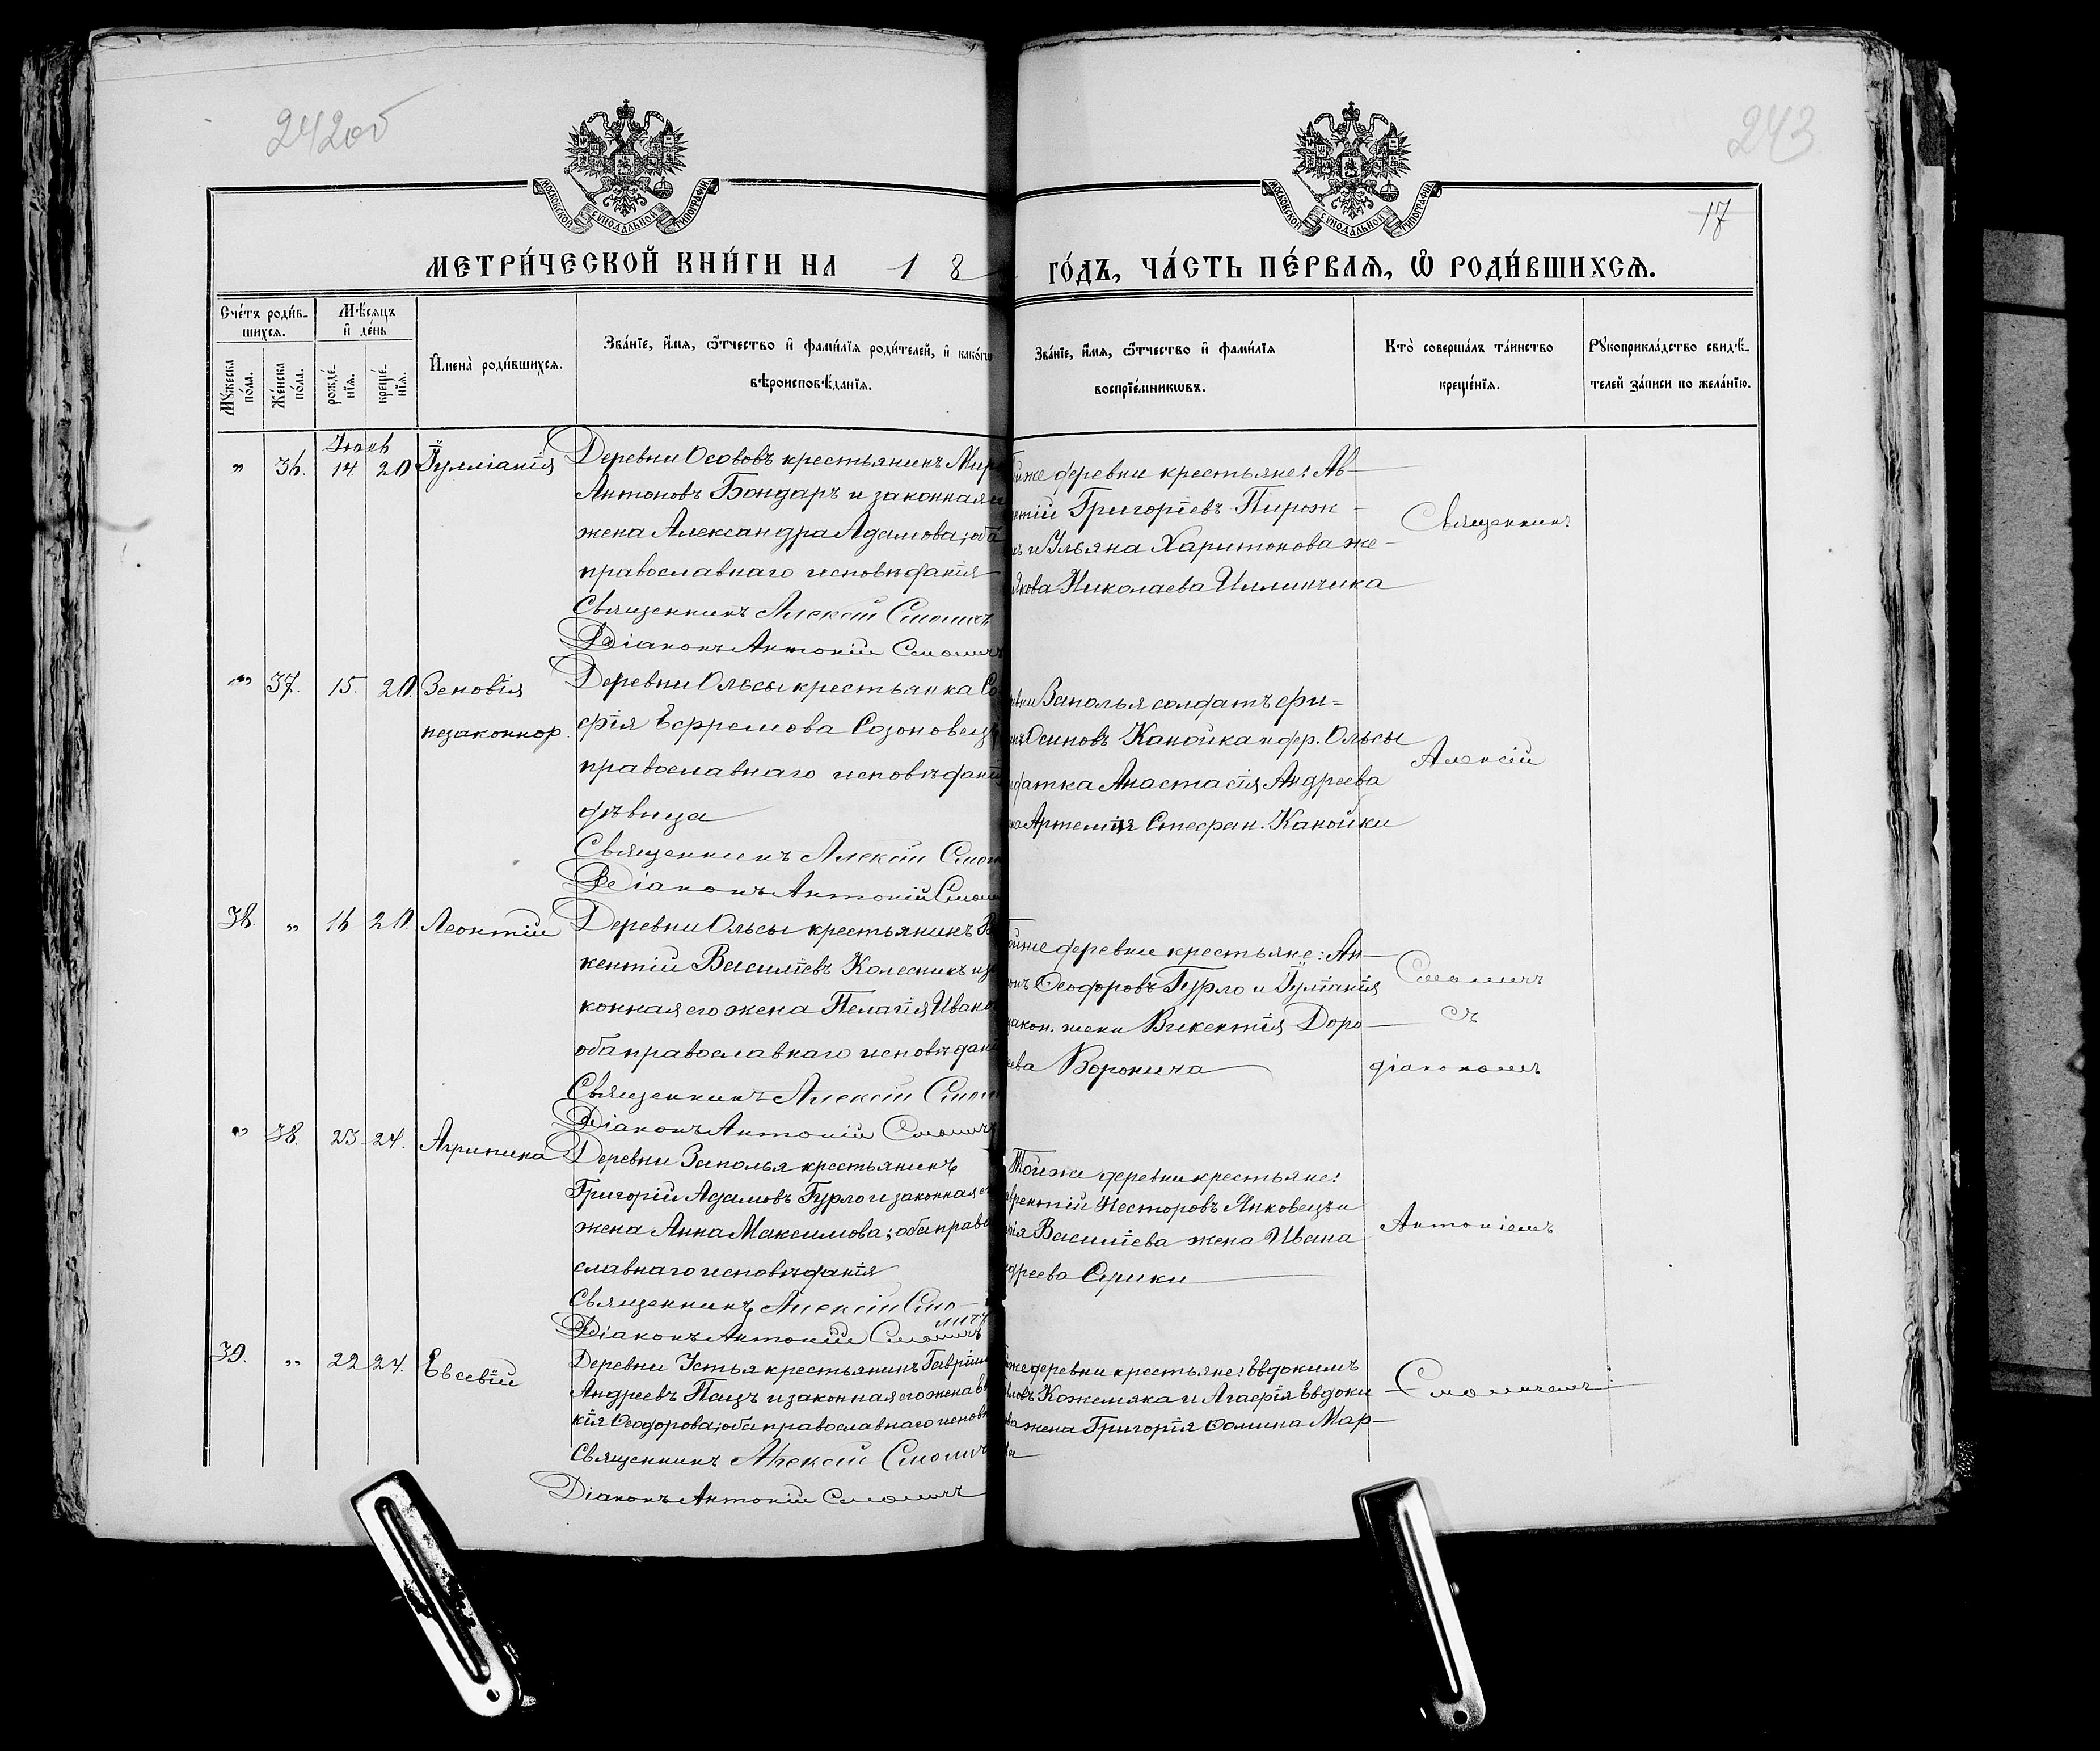 242об
243
17
МОСКОВСКОЙ СУНОДАЛЬНОЙ ТИПОГРАФІИ
МОСКОВСКОЙ СУНОДАЛЬНОЙ ТИПОГРАФІИ
МЕТРИ́ЧЕСКОЙ КНИ́ГИ НА 18 ГО́ДЪ, ЧА́СТЬ ПЕ́РВАЯ, Ѡ РОДИ́ВШИХСЯ.
Сче́тъ роди́в-
шихся.
Мѣ́сяцъ
и҆ де́нь
Му́жеска
по́ла.
Же́нска
по́ла.
рожде́-
нїя.
креще́-
нїя.
И҆мена̀ роди́вшихся.
Зва́нїе, и҆́мя, ѻ҆́тчество и҆ фами́лїя роди́телей, и҆ како́гѡ
вѣроисповѣ́данїя.
Зва́нїе, и҆́мя, ѻ҆́тчество и҆ фами́лїя
воспрїе́мникѡвъ.
Кто̀ соверша́лъ та́инство
креще́нїя.
Рꙋкоприкла́дство свидѣ́-
телей за́писи по жела́нїю.
Іюнь
" 36. 14. 20 Іулліанія
Деревни Осововъ крестьянинъ Мир
Антоновъ Бондарь и законная
жена Александра Адамова; оба
православнаго исповѣданія
Священникъ Алексій Смоличъ
Діаконъ Антоній Смоличъ
же деревни крестьяне: Ав-
Григоріевъ Пирож-
и Ульяна Харитонова же-
Якова Николаева Илличика
Священникъ
" 37. 15. 20. Зеновія
незаконнор.
Деревни Ольсы крестьянка Со-
фія Ефремова Созоновец
православнаго исповѣданія
дѣвица
Священникъ Алексій Смол
Діаконъ Антоній Смол
Заполья солдатъ Фи-
Осиповъ Канойка и дер. Ольсы
датка Анастасія Андреева
Артемія Стефан. Канойки
Алексій
38. " 16 20. Леонтій
Деревни Ольсы крестьянинъ В
кентій Василіевъ Колесникъ и за
конная его жена Пелагія Иван
оба православнаго исповѣдан
Священникъ Алексій Смол
Діаконъ Антоній Смоличъ
же деревни крестьяне: Ан-
Ѳеодоровъ Гурло и Іуліанія
закон. жена Викентія Доро-
ева Воронича
Смоличъ
съ
діакономъ
" 38. 23. 24. Агрипина
Деревни Заполья крестьянинъ
Григорій Адамовъ Гурло и законная
жена Анна Максимова; оба право
славнаго исповѣданія
Священникъ Алексій Смо-
личъ
Діаконъ Антоній Смоличъ
Тойже деревни крестьяне:
врентій Несторовъ Янковецъ и
Василіева жена Ивана
дреева Сушки
Антоніемъ
39. " 22 24. Евсевій
Деревни Устья крестьянинъ Гавріилъ
Андреевъ Пацъ и законная его жена Ев
кія Ѳеодорова; оба православнаго исповѣ
Священникъ Алексій Смоличъ
Діаконъ Антоній Смоличъ
же деревни крестьяне: Евдокимъ
Кожемяка и Агафія Евдоки-
жена Григорія Ѳомина Мар-
Смоличемъ